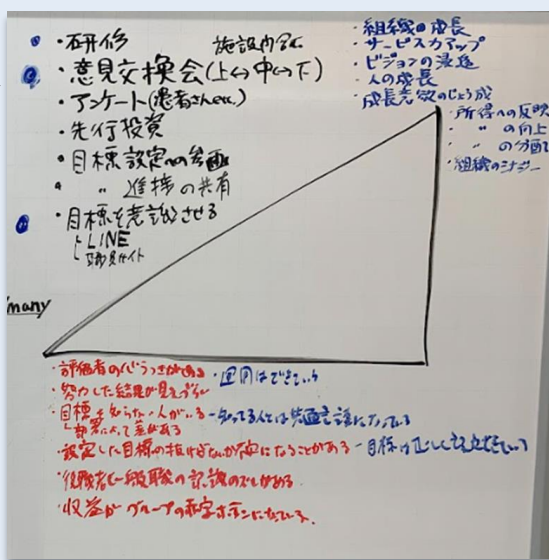 ・研修
施設内会に
・意見交換会(上↔中↔下)
・アンケート(患者さんetc.)
・先行投資
・目標設定への参画
・ 〃 進捗の共有
・目標を意識させる
LINE
職員サイト
・組織の成長
・サービス力アップ
・ビジョンの浸透
・人の成長
・成長意欲のじょう成
・所得への反映
・ 〃 の向上
・ 〃 の分配
・組織のシナジー
many
・評価者のバラつきがある
・運用はできている
・努力した結果が見えづらい
・目標を知らない人がいる
部署によって差がある
・知ってる人とは共通言語になっている
・設定した目標の
になることがある
・目標は正しく
・役職者と一般職の認識のズレがある
・収益がグループの赤字ホテンになっている。